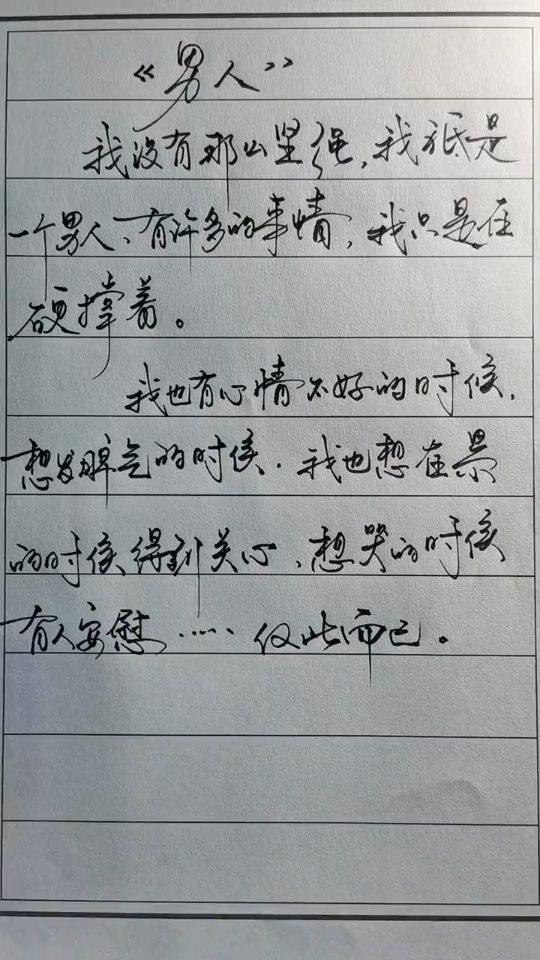 《男人》
我没有那么坚强，我祗是
一个男人、有许多的事情，我只是在
硬撑着。
我也有心情不好的时候，
想发脾气的时候．我也想在累
的时候得到关心、想哭的时候
有人安慰……仅此而已。